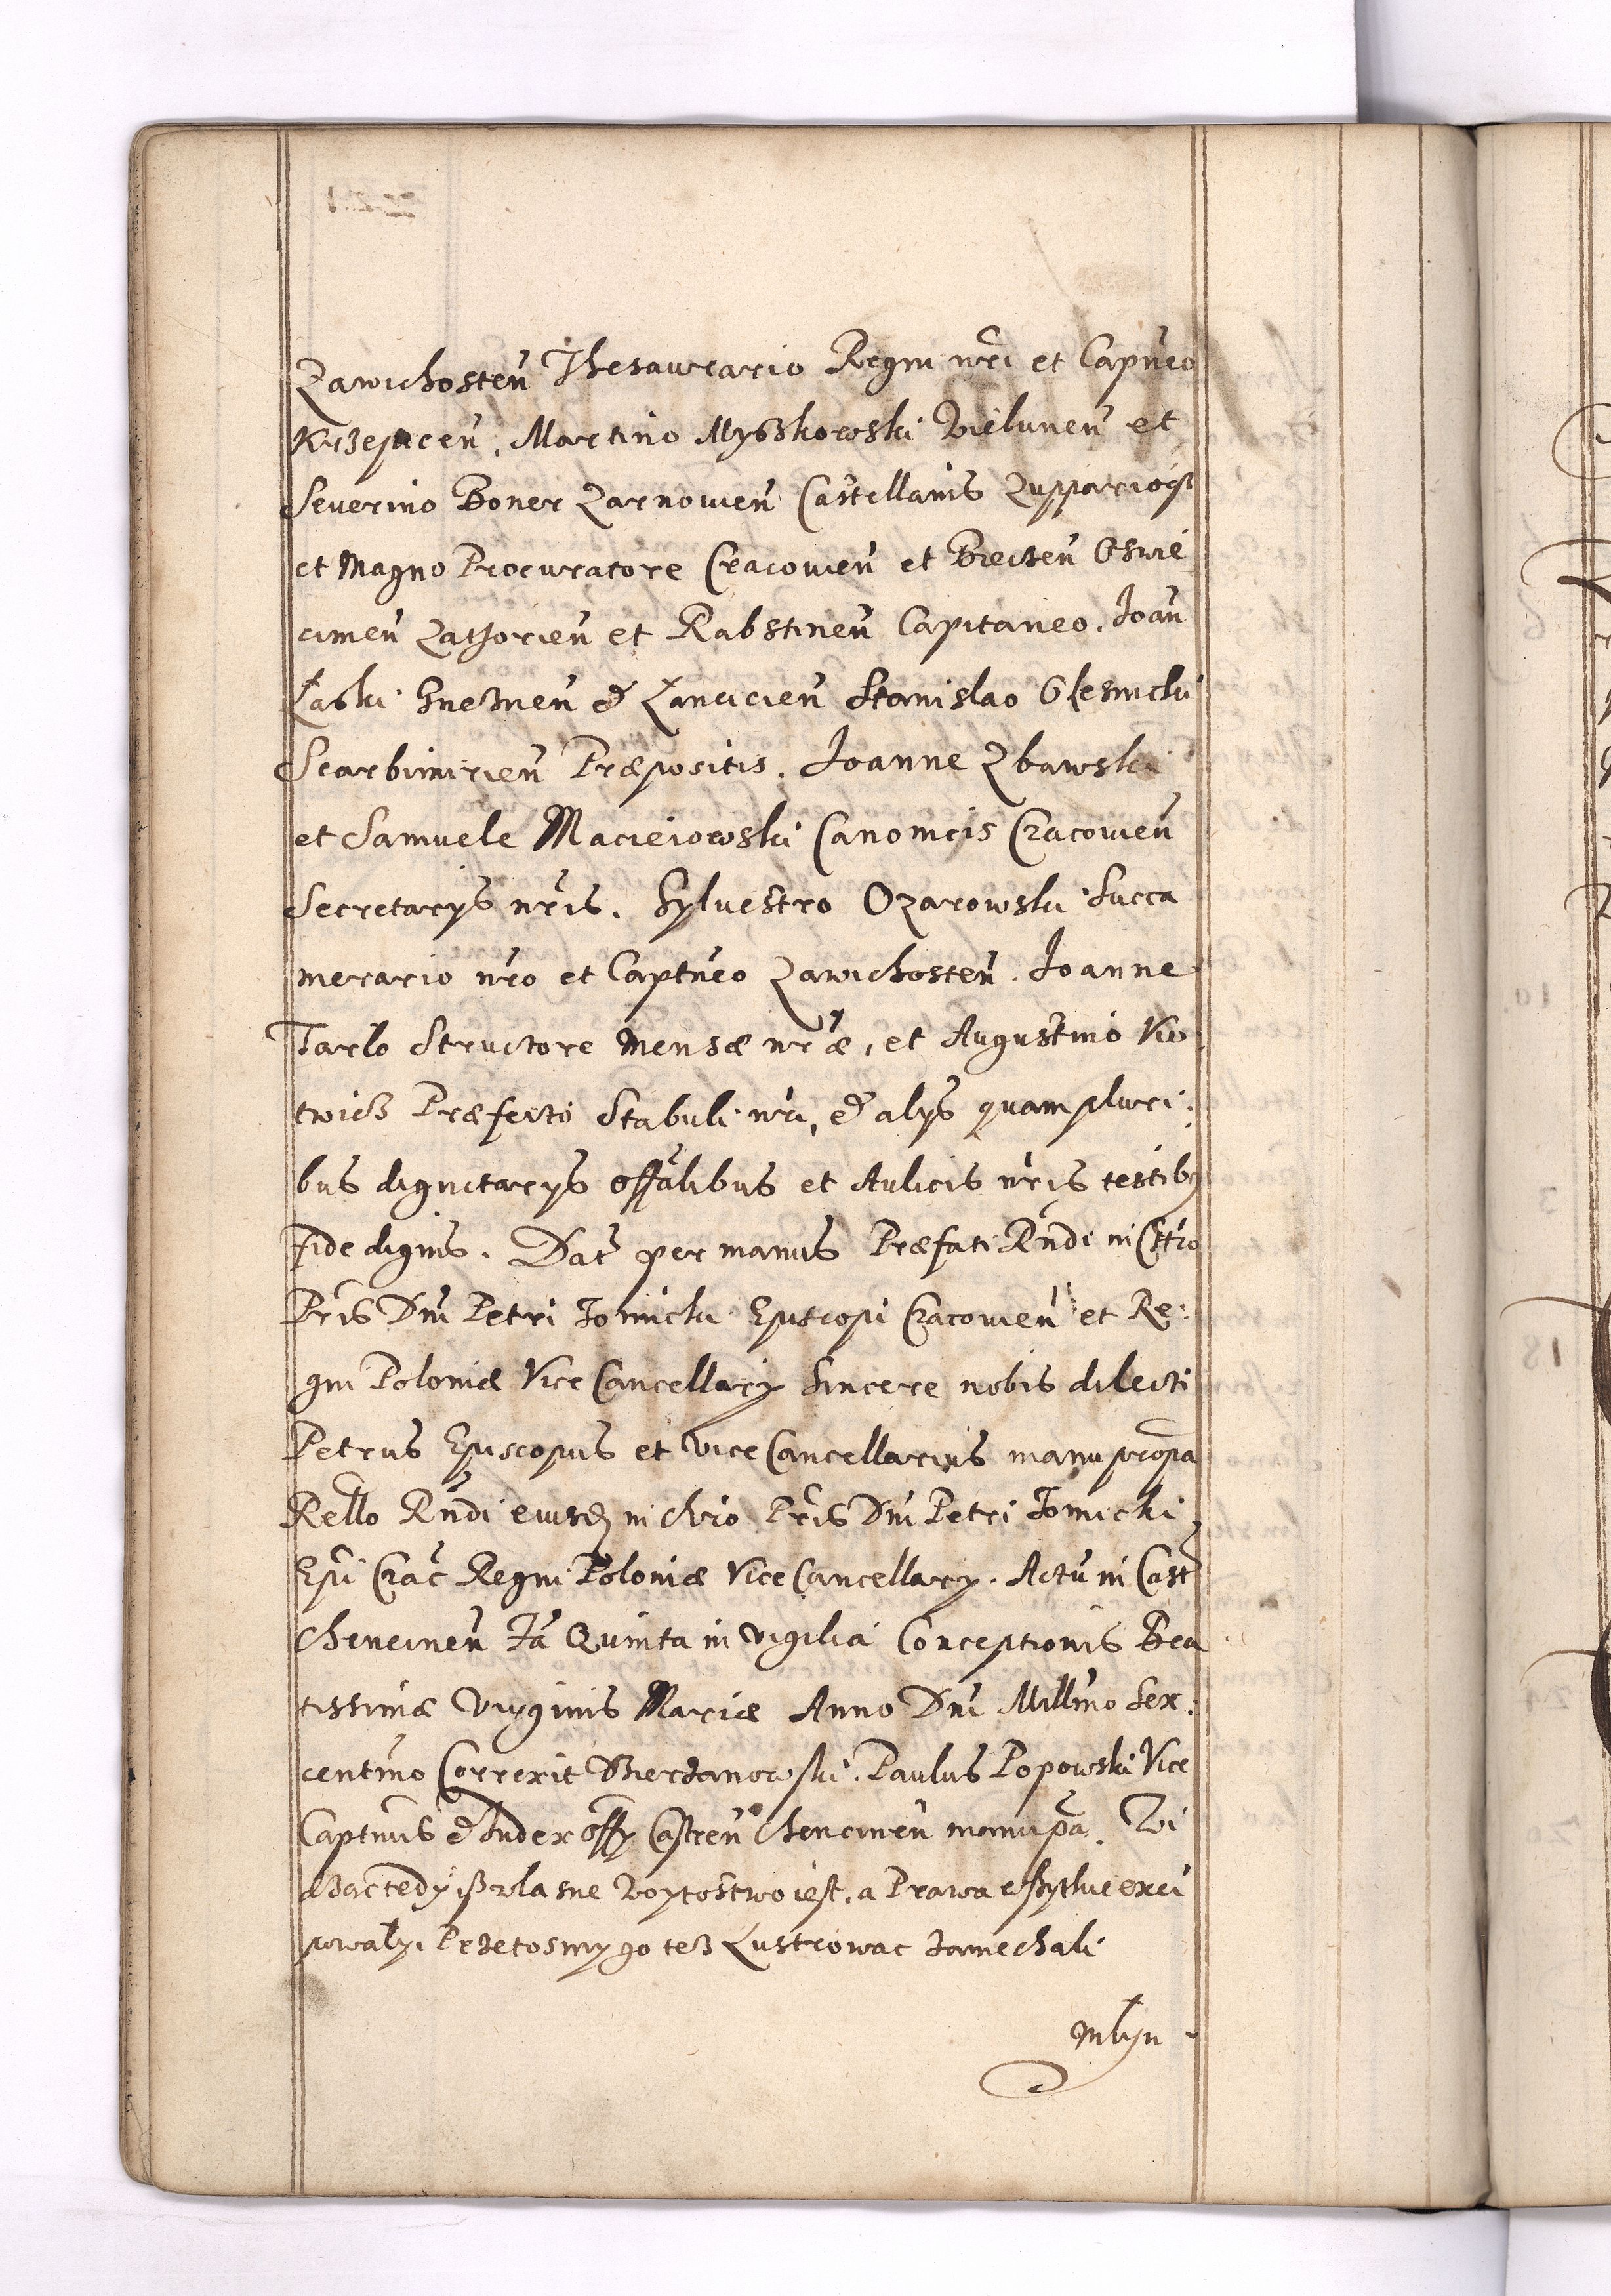 Zawichosteñ Thesaurario Regni nr̃i et Capñeo
Krzepiceñ. Martino Myßkowski Vieluneñ et
Severino Boner Zarnovieñ Castellanis Zuppariog̃
et Magno Procuratore Cracovieñ et Biecseñ Oswie
cimeñ Zathorieñ et Rabstineñ Capitaneo. Joañ
Łaski Gnezneñ & Lancicieñ Stanislao Olesnicki
Scarbimirieñ Præpositis. Joanne Zbąwski
et Samuele Macieiowski Canonicis Cracovieñ
Secretarys nr̃is. Sylvestro Ozarowski Succa
merario nr̃o et Captñeo Zawichosteñ. Joanne
Tarlo Structore Mensæ nr̃æ, et Augustino Kio
twicz Præfecto Stabuli nr̃i, & alys quampluri:
bus dignitarys offãlibus et Aulicis nr̃is testibꝫ
fide dignis. Dat̃ per manus Præfati Rñdi in Chr̃o
Pr̃is Dñi Petri Tomicki Episcopi Cracovieñ et Re:
gni Poloniæ Vice Cancellary Sincere nobis dilecti
Petrus Episcopus et vice Cancellarius manu propa
Rello Rñdi eiusdꝫ in Chr̃o Pr̃is Dñi Petri Tomicki
Epĩ Crac̃ Regni Poloniæ Vice Cancellary. Actũ in Cast̃
Chencineñ Fã Quinta in vigilia Conceptionis Bea
tissimæ Virginis Mariæ Anno Dñi Millm̃o Sex:
centm̃o Correxit Bierzanowski. Paulus Popowski Vice
Captñus & Iudex Offy Castreñ Chencineñ manu pã. Wi
dzac tedy iß własne Woytostwo iest. a Prawa wßytkie excy
powaly. Przetosmy go teß Lustrowac zaniechali
mlyn